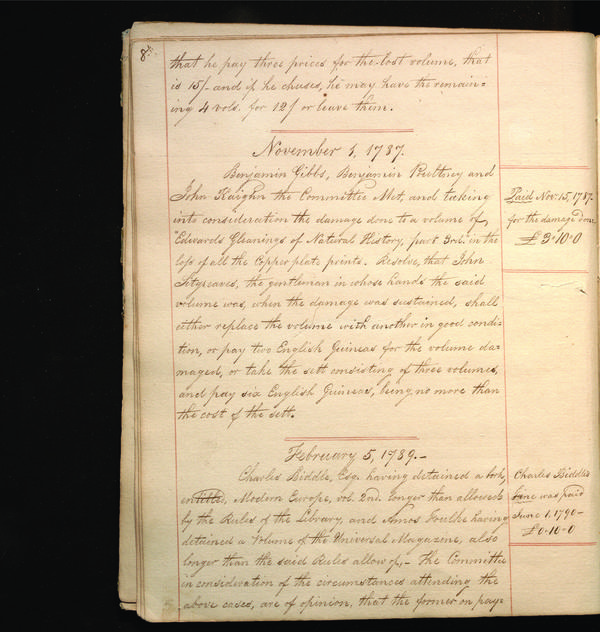 8.
that he pay three prices for the lost volume, that
is 15/- and if he chuses, he may have the remain=
ing 4 vols. for 12/ or leave them.
November 1, 1787.
Benjamin Gibbs, Benjamin Poultney and
John Kaighn the Committee Met, and taking
into consideration the damage done to a volume of,
"Edwards Gleanings of Natural History, part 3rd." in the
loss of all the Copper plate prints. Resolve, that John
Sitgreaves, the gentleman in whose hands the said
volume was, when the damage was sustained, shall
either replace the volume with another in good condi=
tion, or pay two English Guineas for the volume da=
maged, or take the sett consisting of three volumes,
and pay six English Guineas, being no more than
the cost of the sett.
Paid Nov. 15, 1787.
for the damage done
£3=10=0
February 5, 1789.-
Charles Biddle, Esq. having detained a book,
entitled, Modern Europe, vol. 2nd. longer than allowed
by the Rules of the Library, and Amos Foulke having
detained a Volume of the Universal Magazine, also
longer than the said Rules allow of,- The Committee
in consideration of the circumstances attending the
above cases, are of opinion, that the former on pay=
Charles Biddle's
fine was paid
June 1, 1790-
£0=10=0